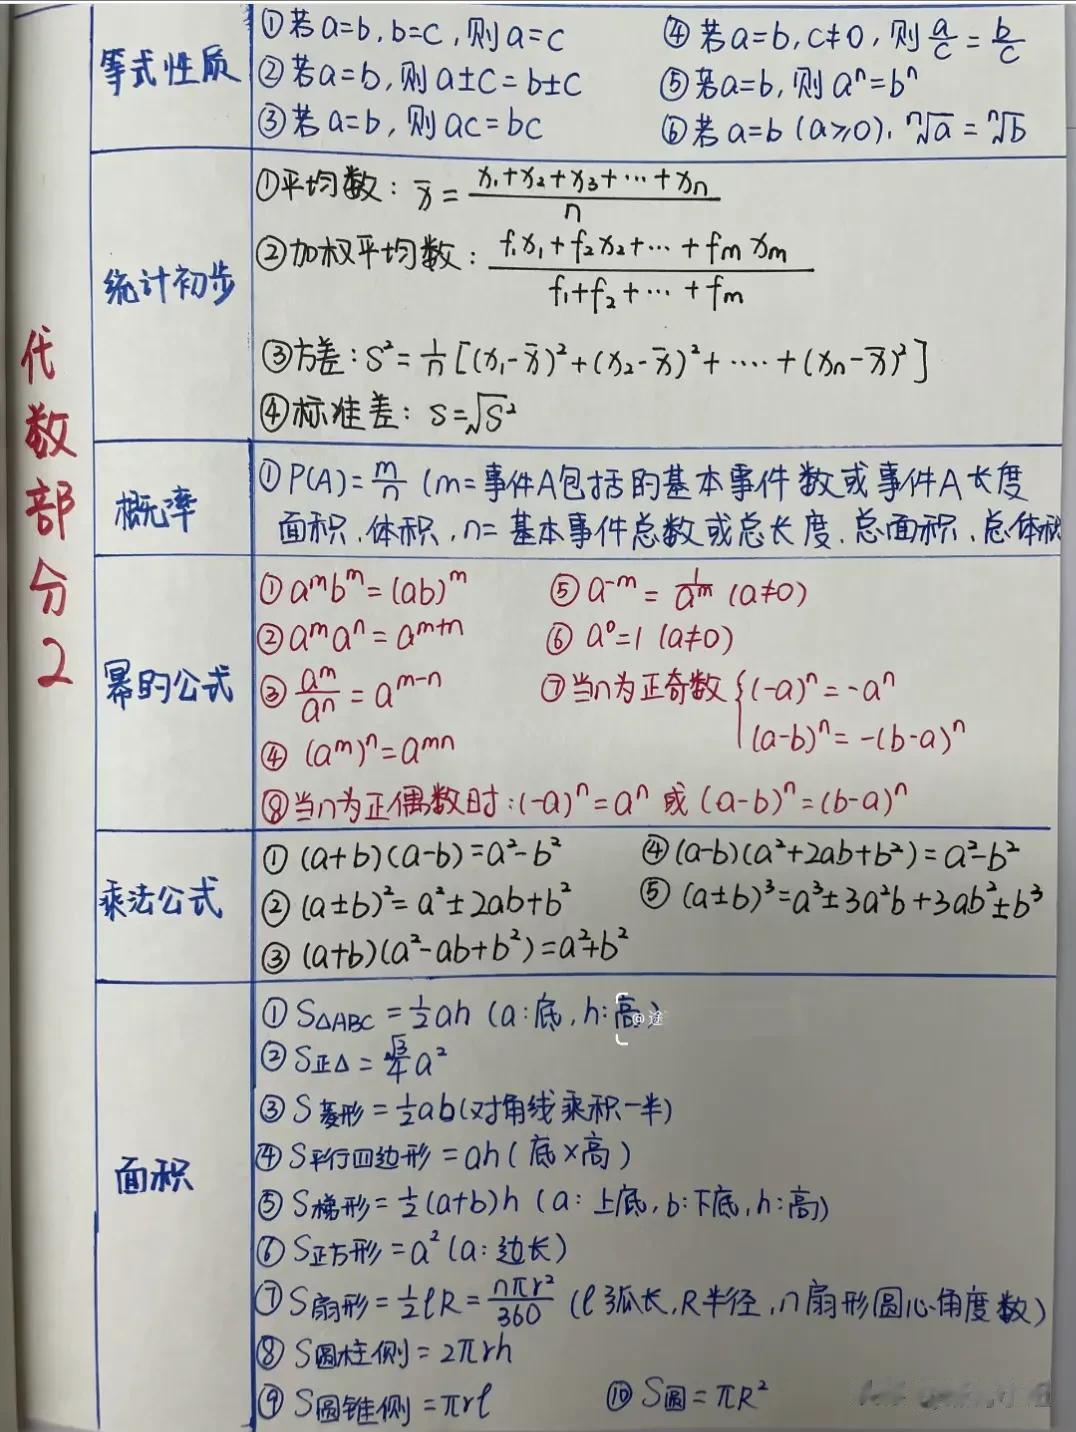 代数部分2
等式性质
①若a=b,b=c,则a=c ④若a=b,c≠0,则a/c=b/c
②若a=b,则a±c=b±c ⑤若a=b,则aⁿ=bⁿ
③若a=b,则ac=bc ⑥若a=b(a≥0),ⁿ√a=ⁿ√b
统计初步
①平均数:x̄=(x₁+x₂+x₃+…+xₙ)/n
②加权平均数:(f₁x₁+f₂x₂+…+fₘxₘ)/(f₁+f₂+…+fₘ)
③方差:S²=1/n[(x₁-x̄)²+(x₂-x̄)²+….+(xₙ-x̄)²]
④标准差:S=√S²
概率
①P(A)=m/n(m=事件A包括的基本事件数或事件A长度
面积、体积,n=基本事件总数或总长度、总面积、总体积
幂的公式
①aᵐbᵐ=(ab)ᵐ ⑤a⁻ᵐ=1/aᵐ(a≠0)
②aᵐaⁿ=aᵐ⁺ⁿ ⑥a⁰=1(a≠0)
③aᵐ/aⁿ=aᵐ⁻ⁿ ⑦当n为正奇数{(-a)ⁿ=-aⁿ
④(aᵐ)ⁿ=aᵐⁿ (a-b)ⁿ=-(b-a)ⁿ
⑧当n为正偶数时:(-a)ⁿ=aⁿ或(a-b)ⁿ=(b-a)ⁿ
乘法公式
①(a+b)(a-b)=a²-b² ④(a-b)(a²+2ab+b²)=a²-b²
②(a±b)²=a²±2ab+b² ⑤(a±b)³=a³±3a²b+3ab²±b³
③(a+b)(a²-ab+b²)=a²+b²
面积
①S△ABC=½ah(a:底,h:高)
@途
②S正△=√3/4a²
③S菱形=½ab(对角线乘积一半)
④S平行四边形=ah(底×高)
⑤S梯形=½(a+b)h(a:上底,b:下底,h:高)
⑥S正方形=a²(a:边长)
⑦S扇形=½ℓR=nπr²/360(ℓ弧长,R半径,n扇形圆心角度数)
⑧S圆柱侧=2πrh
⑨S圆锥侧=πrℓ ⑩S圆=πR²